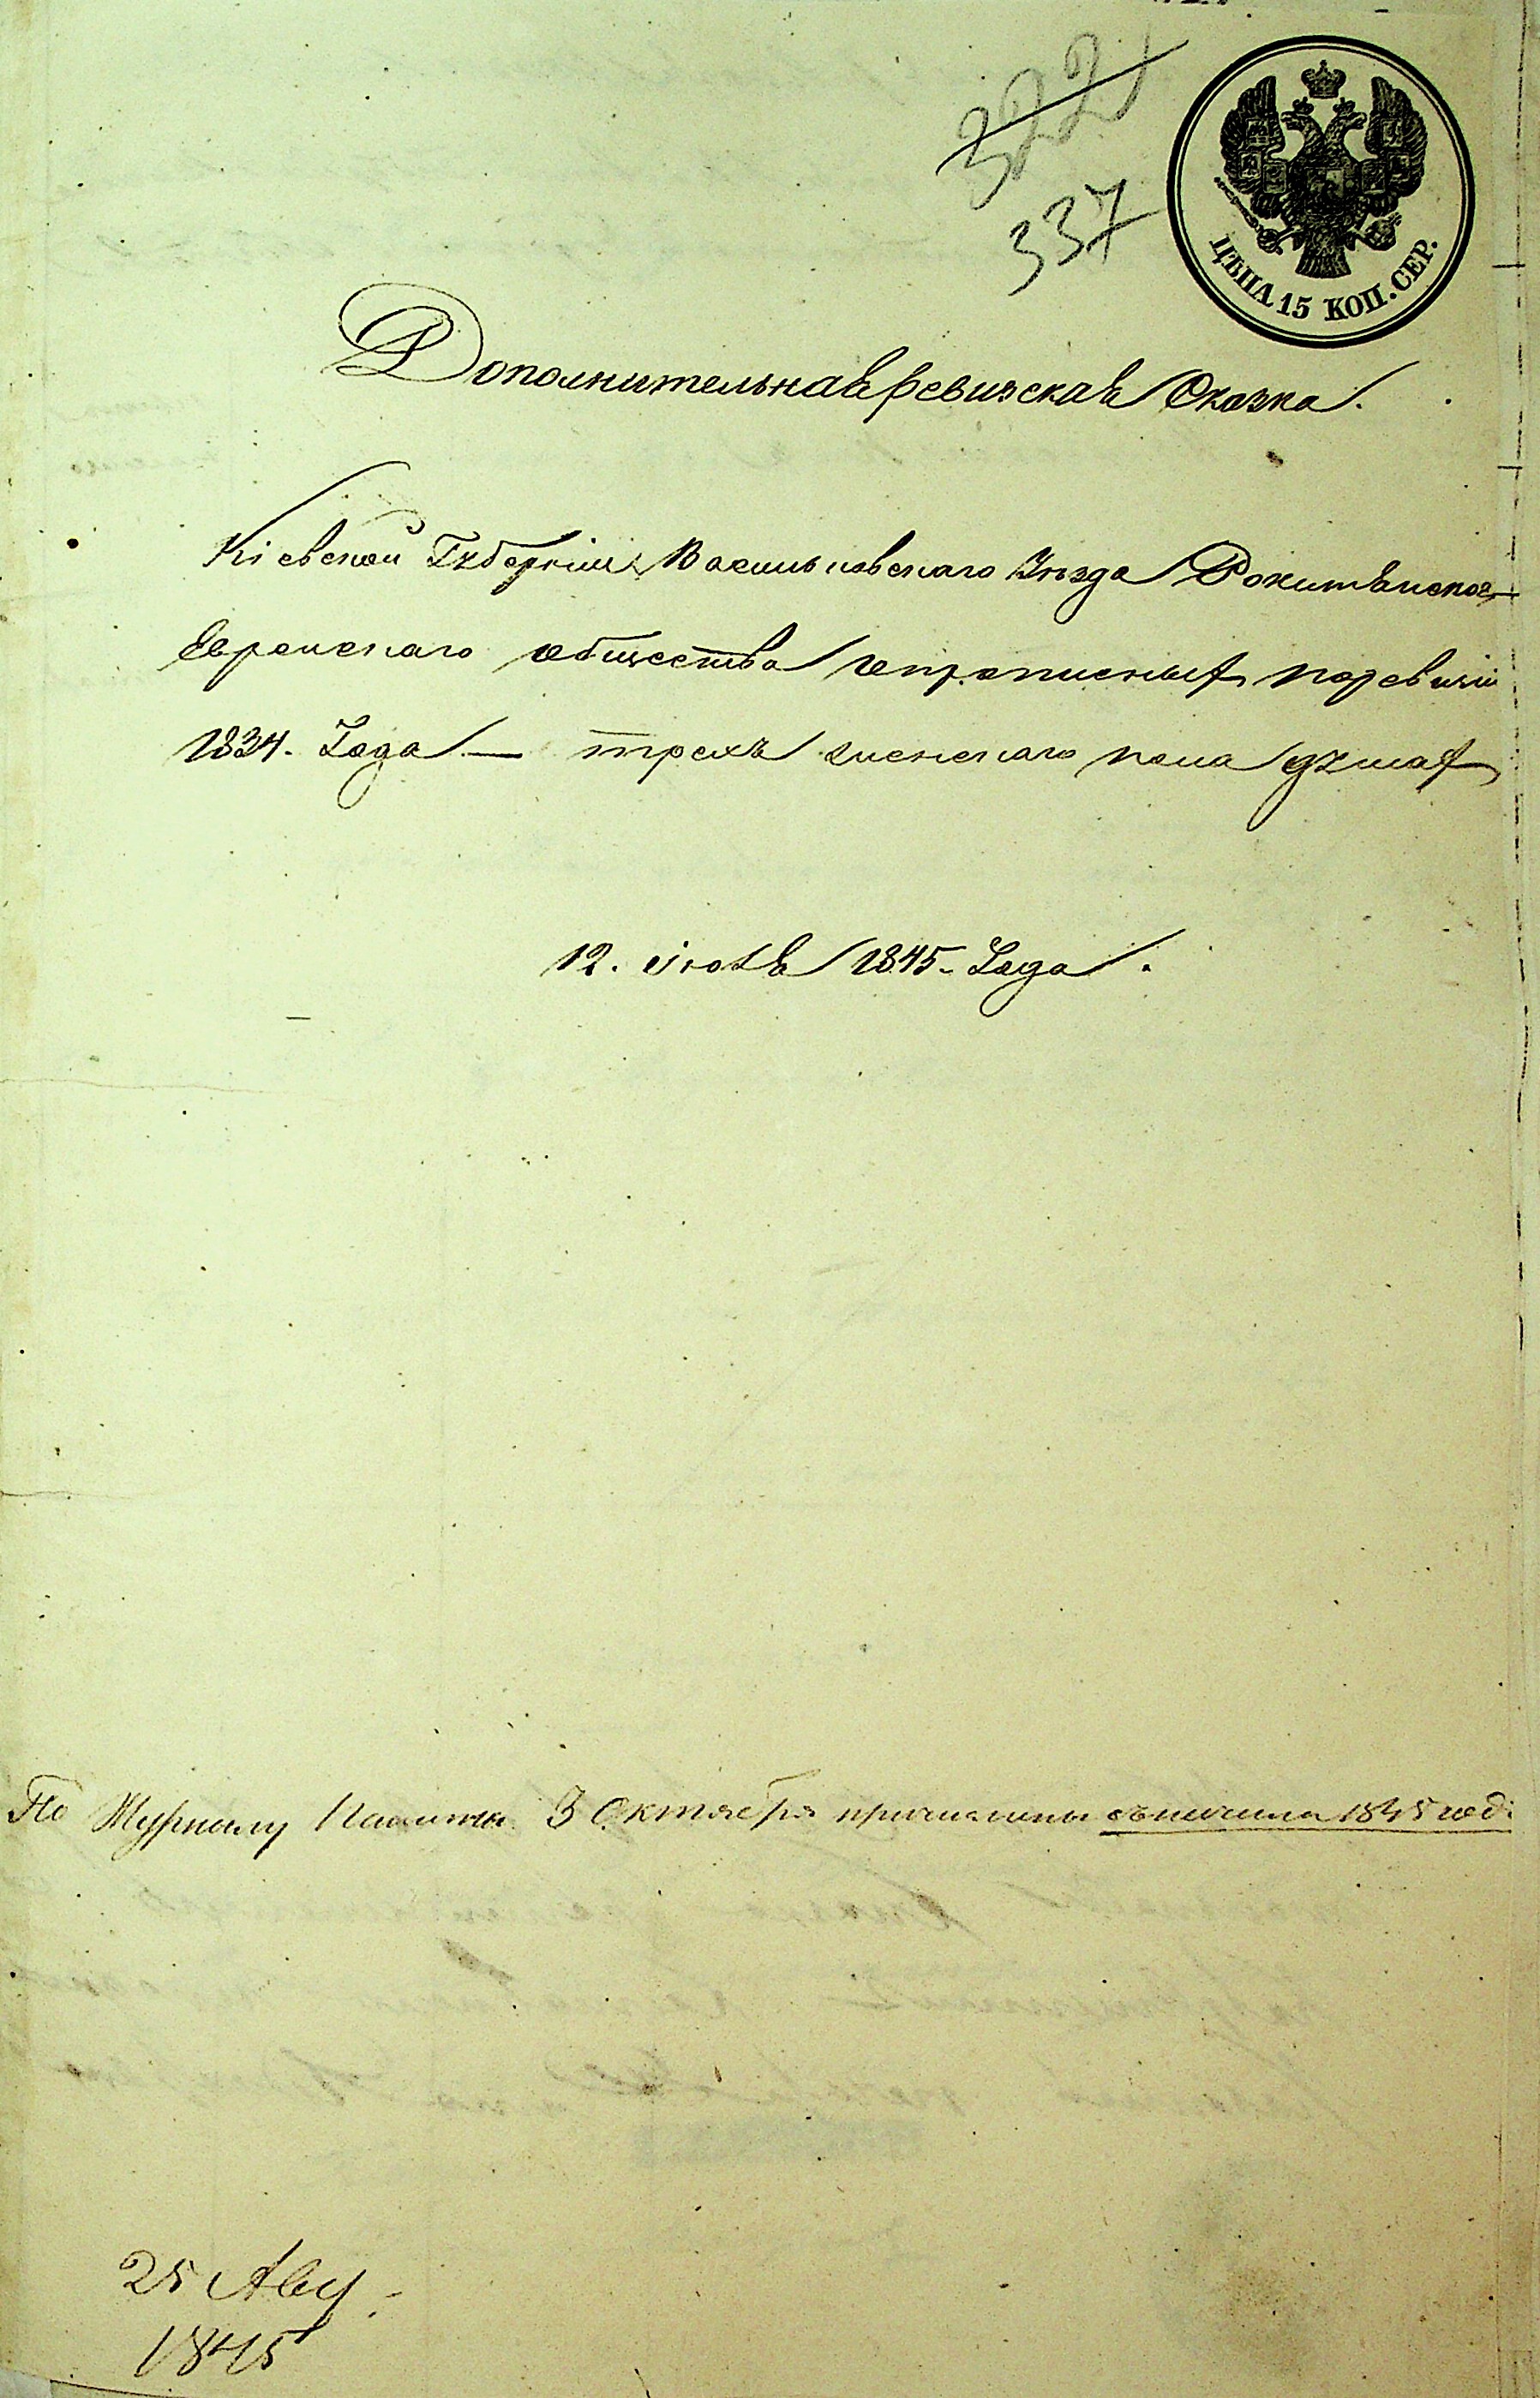 3221
337
ЦѢНА 15 КОП. СЕР.
Дополнительная ревизская Сказка.
Кіевской Губерніи Васильковскаго Уѣзда Рокитянскаго
Еврейскаго общества непрописныхъ по ревизіи
1834. Года — трехъ женскаго пола душахъ
12. іюля 1845. Года.
По Журналу Палаты 3 Октября причислены съ начала 1845 года
25 Авг.
1845